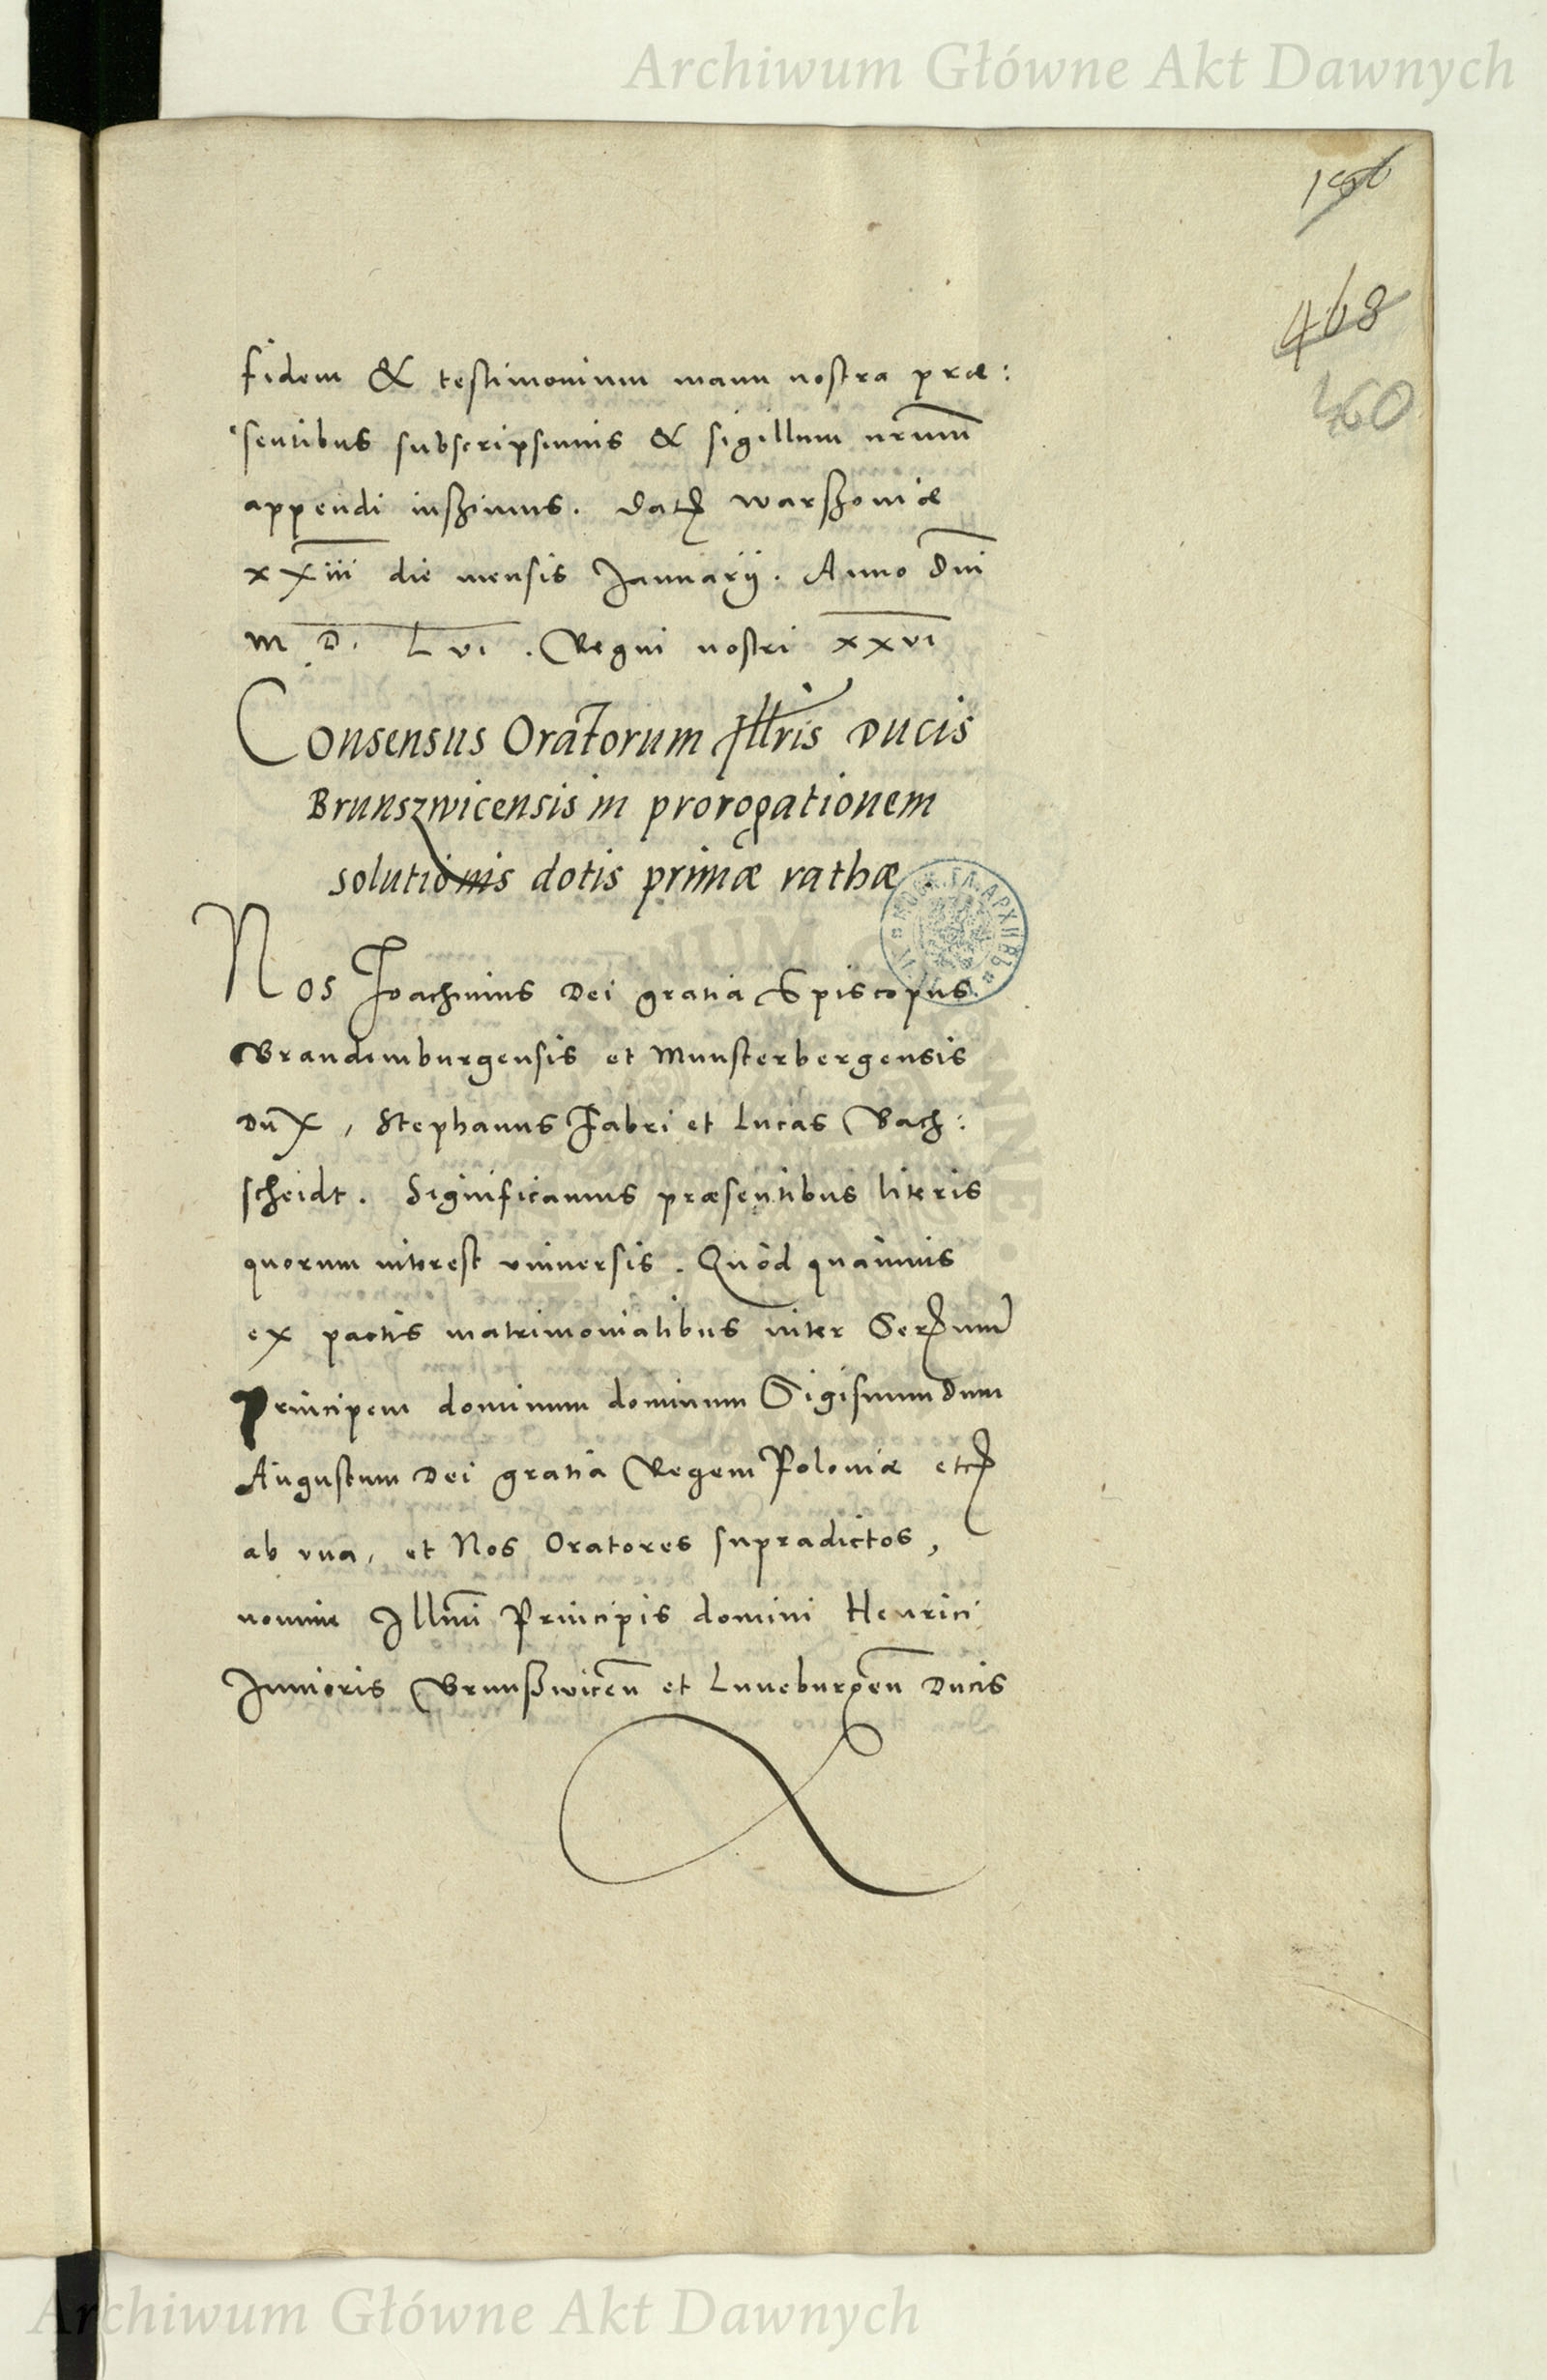 Archiwum Główne Akt Dawnych
468
460
fidem & testimonium manu nostra præ:
sentibus subscripsimus & sigillum nrum
appendi iussimus. Dat Warszoviæ
xxiii die mensis Januarij. Anno Dni
M D. Lvi. Regni nostri xxvi
Consensus Oratorum Illris Ducis
Brunszwicensis in prorogationem
solutionis dotis primæ rathæ
Nos Joachimus Dei gratia Episcopus
Brandemburgensis et Munsterbergensis
Dux, Stephanus Fabri et Lucas Bach:
scheidt. Significamus præsentibus literis
quorum interest vniuersis. Quòd quamuis
ex pactis matrimonialibus inter Ser.mum
Principem dominum dominum Sigismundum
Augustum Dei gratia Regem Poloniæ etc
ab vna, et Nos Oratores supradictos,
nomine Illmi Principis domini Henrici
Junioris Brunßwicen et Luneburgen Ducis
Archiwum Główne Akt Dawnych